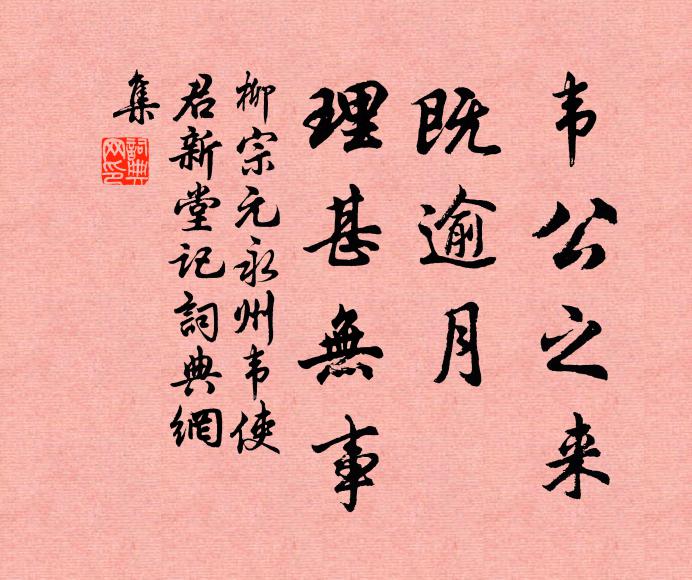 韦公之来
既逾月
理甚無事
柳宗元永州韦使
君新堂记詞典網
集
詞典
网印